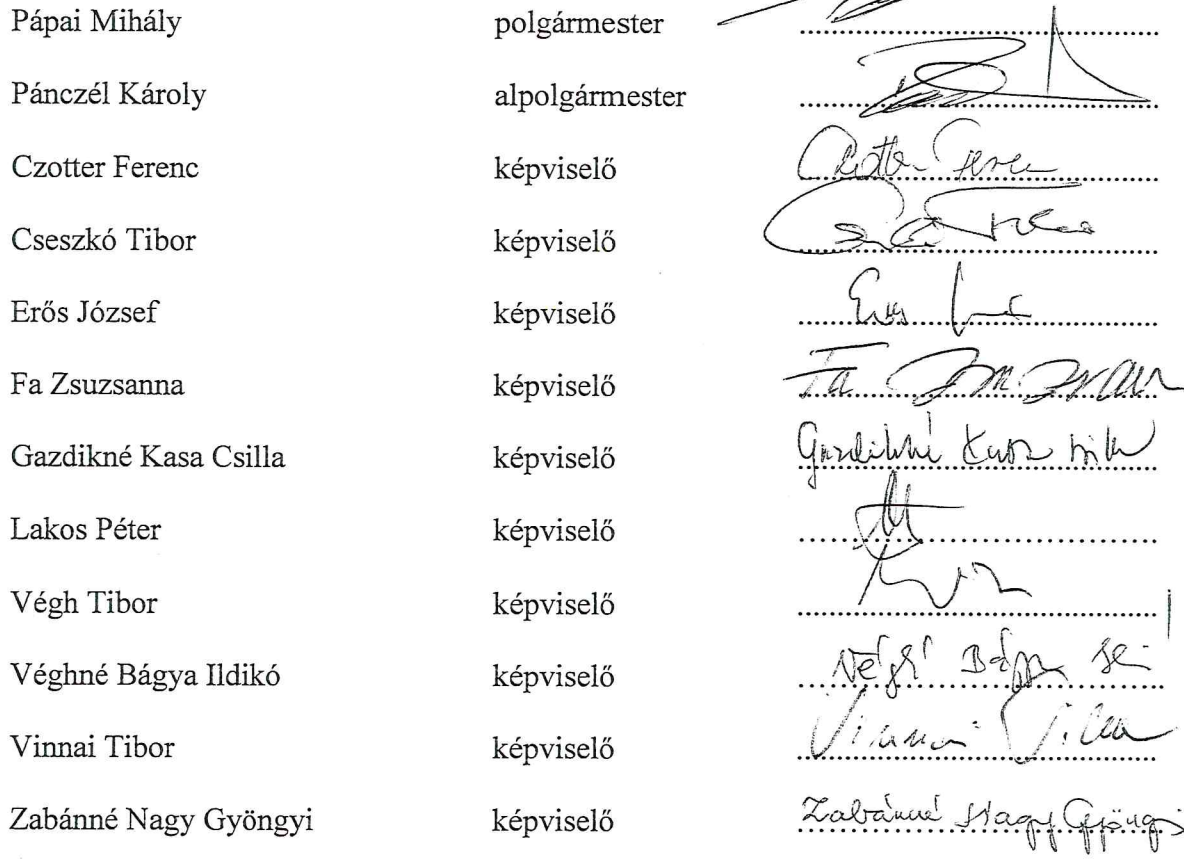 Pápai Mihály polgármester
Pánczél Károly alpolgármester
Czotter Ferenc képviselő
Cseszkó Tibor képviselő
Erős József képviselő
Fa Zsuzsanna képviselő Fa
Gazdikné Kasa Csilla képviselő Gazdikné Kasa
Lakos Péter képviselő
Végh Tibor képviselő
Véghné Bágya Ildikó képviselő
Vinnai Tibor képviselő Vinnai
Zabánné Nagy Gyöngyi képviselő Zabánné Nagy Gyöngyi